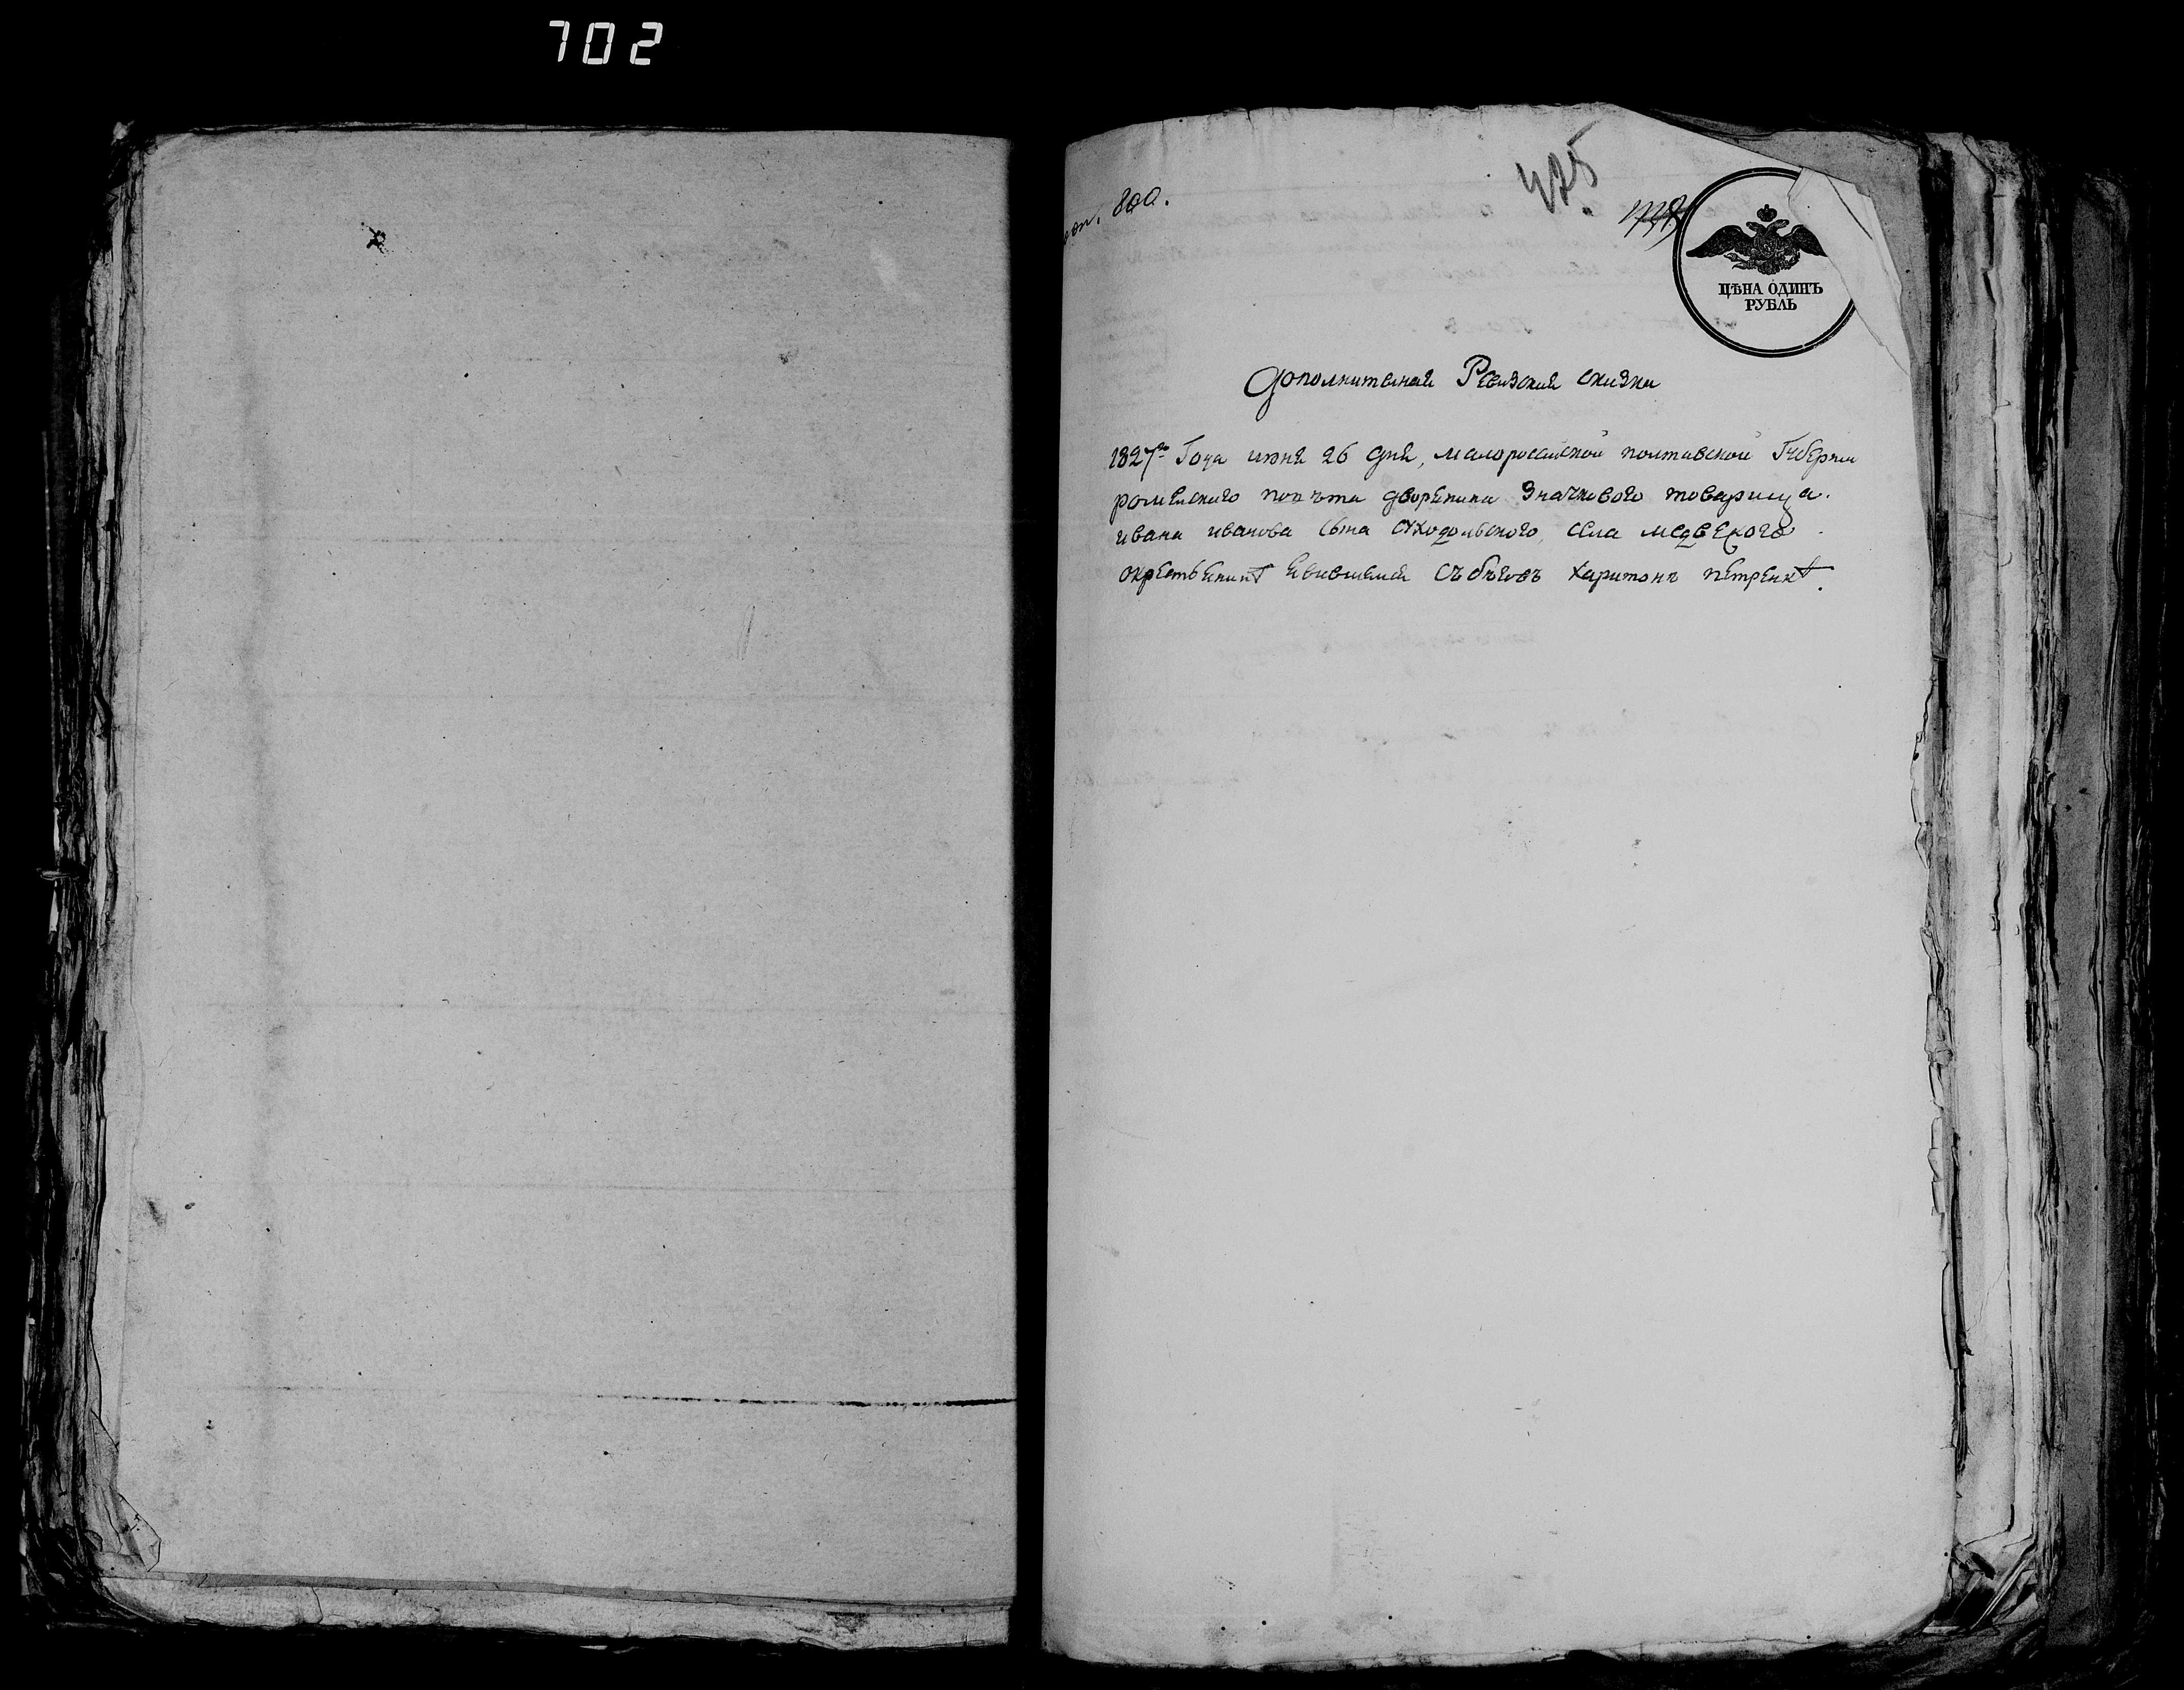 702
от. 800.
475
ЦѢНА ОДИНЪ
РУБЛЬ
Дополнителная Ревизская сказка
1827го Года июня 26 дня, малоросийской полтавской Губернии
роменского повѣта дворенина Значкового товарища.
ивана иванова сына сУходольского, села медвежого
окрестьенинѣ евившемся съ бѣговъ харитонѣ петренкѣ.